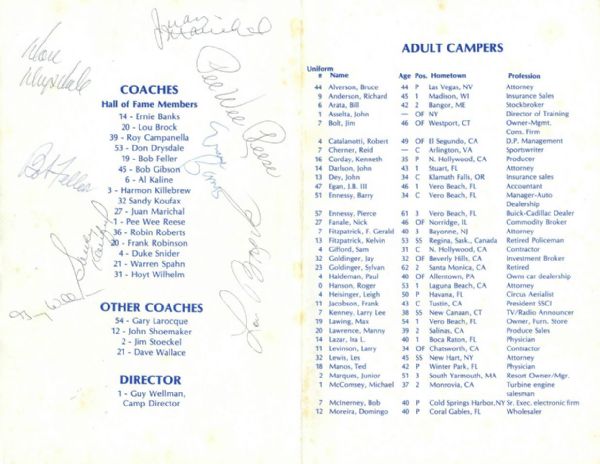 Juan Marichal
Don Drysdale
Pee Wee Reese
Bob Feller
Ernie Banks
Sandy Koufax
Lou Brock
COACHES
Hall of Fame Members
14 - Ernie Banks
20 - Lou Brock
39 - Roy Campanella
53 - Don Drysdale
19 - Bob Feller
45 - Bob Gibson
6 - Al Kaline
3 - Harmon Killebrew
32 Sandy Koufax
27 - Juan Marichal
1 - Pee Wee Reese
36 - Robin Roberts
20 - Frank Robinson
4 - Duke Snider
21 - Warren Spahn
31 - Hoyt Wilhelm
OTHER COACHES
54 - Gary Larocque
12 - John Shoemaker
2 - Jim Stoeckel
21 - Dave Wallace
DIRECTOR
1 - Guy Wellman,
Camp Director
ADULT CAMPERS
Uniform
# Name Age Pos. Hometown Profession
44 Alverson, Bruce 44 P Las Vegas, NV Attorney
9 Anderson, Richard 45 1 Madison, WI Insurance Sales
6 Arata, Bill 42 2 Bangor, ME Stockbroker
1 Asselta, John — OF NY Director of Training
7 Bolt, Jim 46 OF Westport, CT Owner-Mgmt.
Con. Firm
4 Catalanotti, Robert 49 OF El Segundo, CA D.P. Management
7 Cherner, Reid — C Arlington, VA Sportswriter
16 Corday, Kenneth 35 P N. Hollywood, CA Producer
14 Darlson, John 43 1 Stuart, FL Attorney
13 Dey, John 34 C Klamath Falls, OR Insurance sales
47 Egan, J.B. III 46 1 Vero Beach, FL Accountant
51 Ennessy, Barry 34 C Vero Beach, FL Manager-Auto
Dealership
57 Ennessy, Pierce 61 3 Vero Beach, FL Buick-Cadillac Dealer
27 Fanale, Nick 46 OF Norridge, IL Commodity Broker
7 Fitzpatrick, F. Gerald 40 3 Bayonne, NJ Attorney
13 Fitzpatrick, Kelvin 53 SS Regina, Sask., Canada Retired Policeman
4 Gifford, Sam 31 C N. Hollywood, CA Contractor
32 Goldinger, Jay 32 OF Beverly Hills, CA Investment Broker
23 Goldinger, Sylvan 62 2 Santa Monica, CA Retired
4 Haldeman, Paul 40 OF Allentown, PA Own car dealership
0 Hanson, Roger 53 1 Laguna Beach, CA Attorney
4 Heisinger, Leigh 50 P Havana, FL Circus Aerialist
11 Jacobson, Frank 43 C Tustin, CA President SSCI
7 Kenney, Larry Lee 38 SS New Canaan, CT TV/Radio Announcer
19 Lawing, Max 54 1 Vero Beach, FL Owner, Furn. Store
20 Lawrence, Manny 39 2 Salinas, CA Produce Sales
14 Lazar, Ira L. 40 1 Boca Raton, FL Physician
11 Levinson, Larry 34 OF Chatsworth, CA Contractor
32 Lewis, Les 45 SS New Hart, NY Attorney
18 Manos, Ted 42 P Winter Park, FL Physician
2 Marques, Junior 51 3 South Yarmouth, MA Resort Owner/Mgr.
1 McComsey, Michael 37 2 Monrovia, CA Turbine engine
salesman
7 McInerney, Bob 40 P Cold Springs Harbor,NY Sr. Exec. electronic firm
12 Moreira, Domingo 40 P Coral Gables, FL Wholesaler